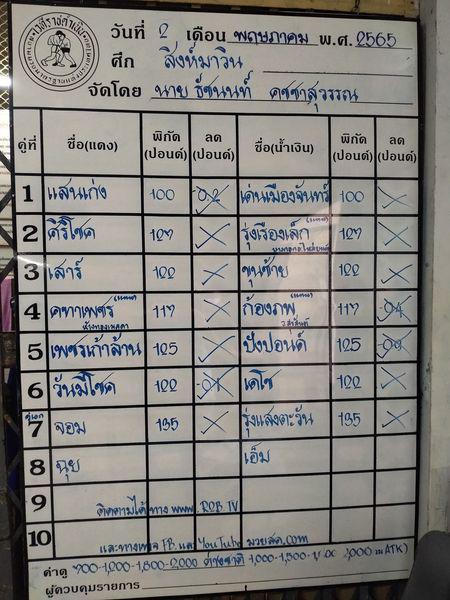 เวทีราชดำเนิน
วันที่ 2 เดือน พฤษภาคม พ.ศ. 2565
ศึก สิงห์มาวิน
จัดโดย นาย ธัชนนท์ คชชาสุวรรณ
คู่ที่ ชื่อ(แดง) พิกัด (ปอนด์) ลด (ปอนด์) ชื่อ(น้ำเงิน) พิกัด (ปอนด์) ลด (ปอนด์)
1 แสนเก่ง 100 0.2 เด่นเมืองจันทร์ 100
2 คีรีโชค 127 รุ่งเรืองเล็ก (แทน) 127
3 เสาร์ 122 ขุนช้าย 122
4 คทาเพชร (แทน) 117 ก้องภพ (แทน) 117 0.4
5 เพชรเก้าล้าน 125 ปังปอนด์ 125
6 วันมีโชค 122 เคโช 122
คู่เอก
7 จอม 135 รุ่งแสงตะวัน 135
8 ฉุย เอ็ม
9 ติดตามได้ทาง www.
10 และทางเพจ FB. และ YouTube มวยสด.com
ค่าดู 900-1,200-1,800-2,000 ต่างชาติ 1,000-1,500-
ผู้ควบคุมรายการ